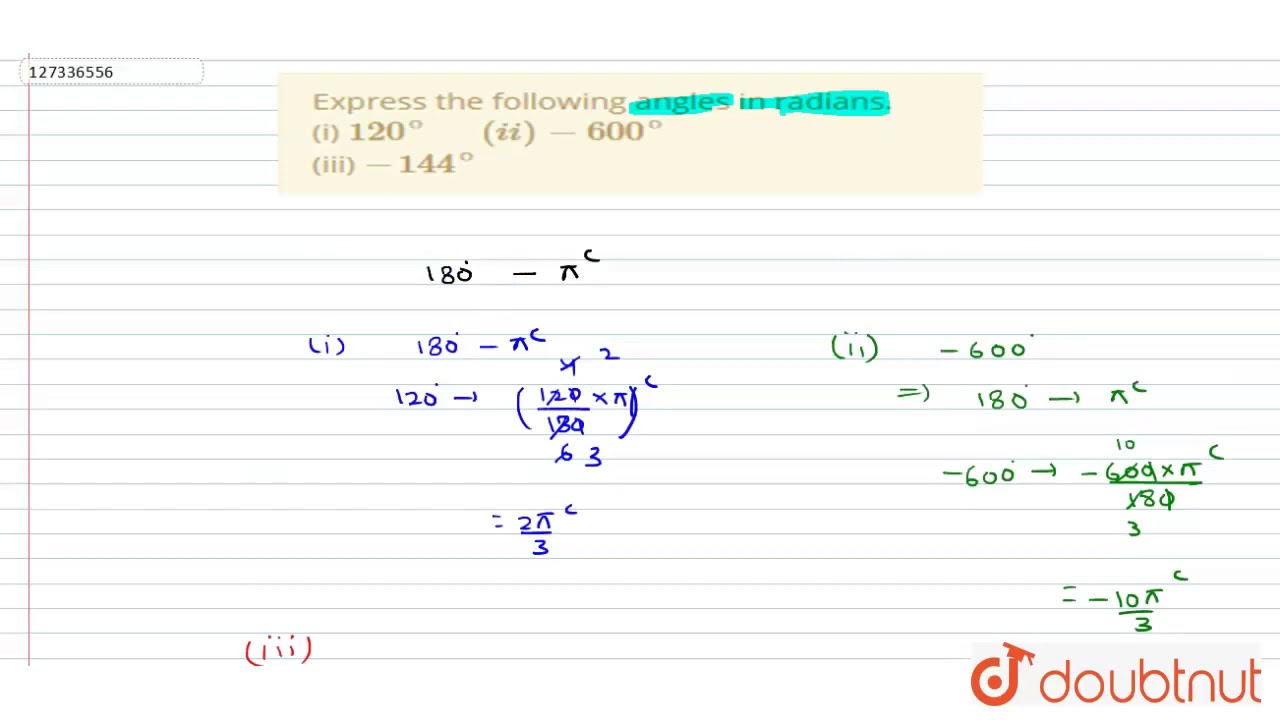 127336556
Express the following angles in radians.
(i) 120° (ii) − 600°
(iii) − 144°
180° − π^c
(i) 180° − π^c
4 2
120° → (120 × π / 180)^c
6 3
= 2π^c / 3
(ii) − 600°
⇒ 180° → π^c
10
−600° → −600 × π^c / 180
3
= −10π^c / 3
(iii)
doubtnut